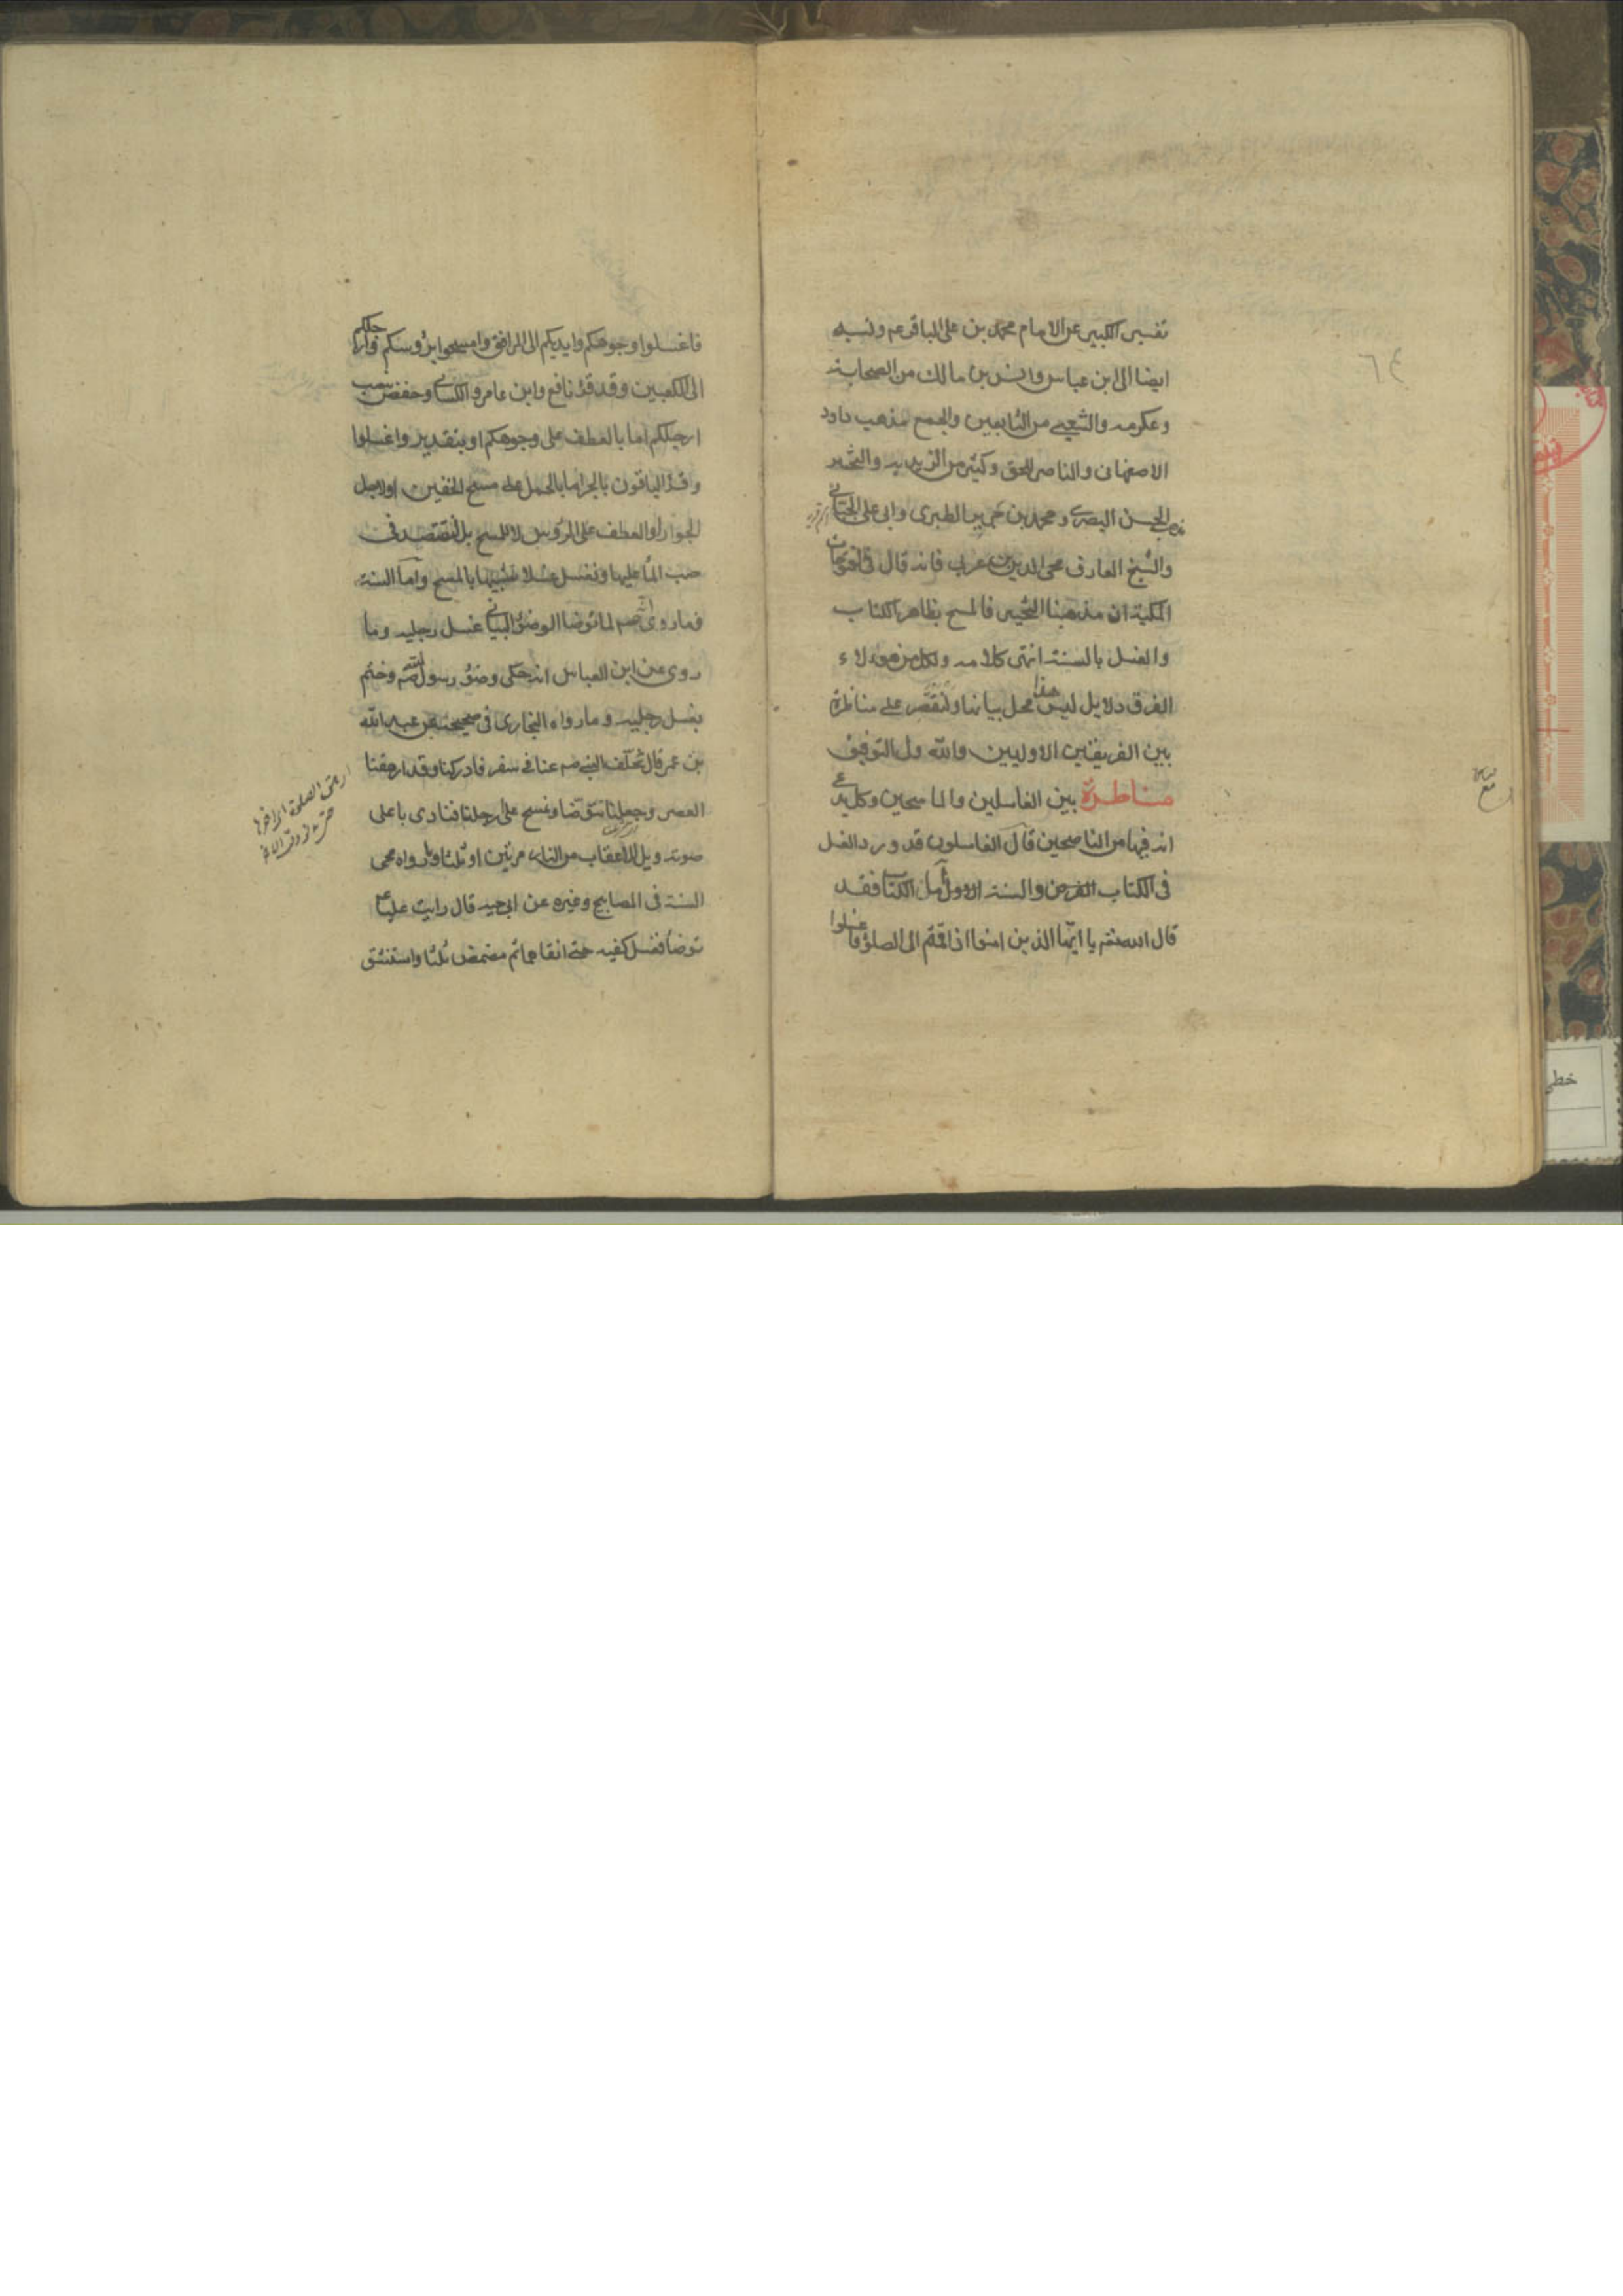 ٦٤
تفسير الكبير عن الامام محمد بن على الباقر عم ونسبه
ايضا الى ابن عباس وانس بن مالك من الصحابة
وعكرمه والشعبي من التابعين والجمع مذهب داود
الاصفهانى والناصر للحق وكثير من الزيديه والتخير
مذهب الحسن البصرى ومحمد بن جرير الطبرى وابى على الجبائى
والشيخ العارف محى الدين بن عربى فانه قال فى الفتوحات
المكية ان مذهبنا التخيير فالمسح بظاهر الكتاب
والغسل بالسنة انتهى كلامه ولكل من هؤلاء
الفرق دلايل ليس هذا محل بيانها ولنقتصر على مناظرة
بين الفريقين الاوليين والله ولى التوفيق
مناظرة بين الغاسلين والماسحين وكل يدعى
انه فيها من الناصحين قال الغاسلون قد ورد الغسل
فى الكتاب العزيز والسنة اما الكتاب فقد
قال الله تعالى يا ايها الذين امنوا اذا قمتم الى الصلوة فاغسلوا
فاغسلوا وجوهكم وايديكم الى المرافق وامسحوا برؤسكم وارجلكم
الى الكعبين وقد قرأ نافع وابن عامر والكسائى وحفص بنصب
ارجلكم اما بالعطف على وجوهكم او بتقدير واغسلوا
وقرأ الباقون بالجر اما بالحمل على مسح الخفين اولاجل
الجوار او العطف على الرؤس لا للمسح بل لتقتصد فى
صب الماء عليها وتغسل غسلا شبيها بالمسح واما السنة
فما روى انه صم لما توضأ الوضوء البيانى غسل رجليه وما
روى عن ابن العباس انه حكى وضوء رسول الله صم وختم
بغسل رجليه وما رواه البخارى فى صحيحه عن عبد الله
بن عمر قال تخلف النبى صم عنا فى سفر فادركنا وقد ارهقنا
العصر وجعلنا نتوضأ ونمسح على ارجلنا فنادى باعلى
صوته ويل للاعقاب من النار مرتين او ثلثا وروواه محيى
السنة فى المصابيح وغيره عن ابى حيه قال رايت عليا ع
توضأ فغسل كفيه حتى انقاهما ثم مضمض ثلثا واستنشق
ارهق الصلوة اخرها
خطى